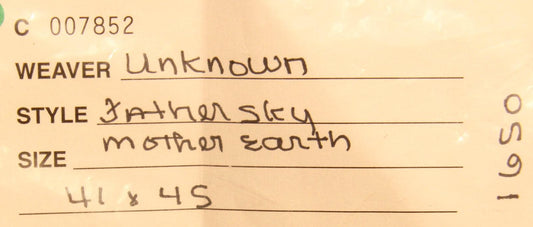 C 007852
WEAVER Unknown
STYLE Father Sky
mother earth
SIZE
41 x 45
1950